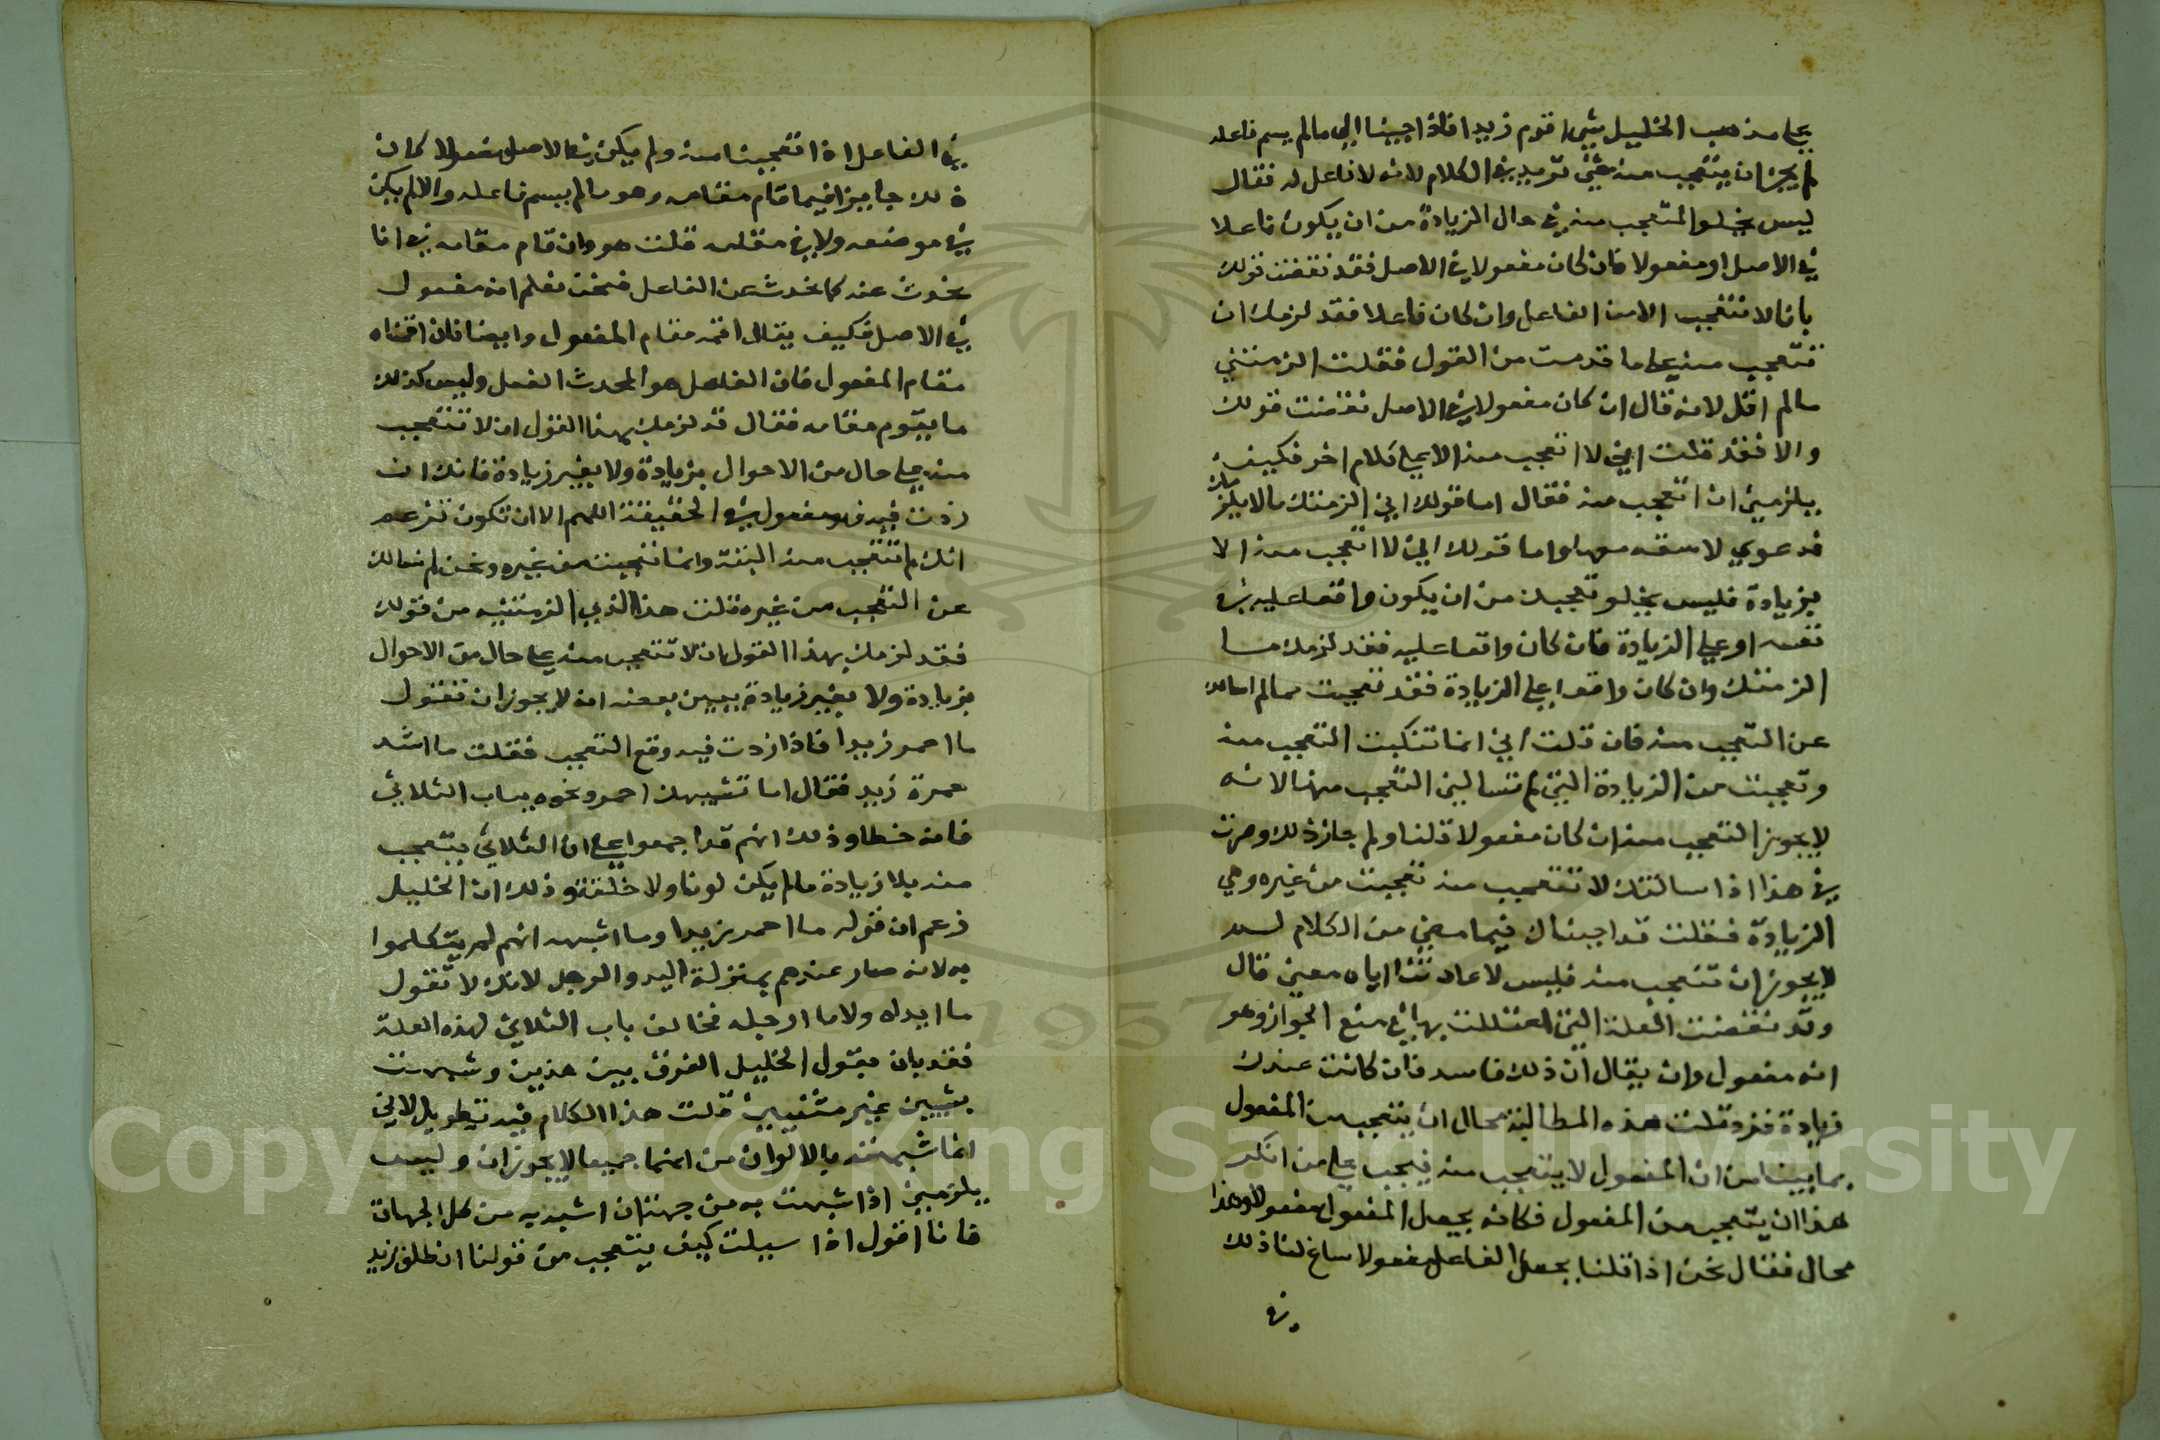 على مذهب الخليل بشي اقوم زيدا فاذا جينا الى مالم يسم فاعله
لم يجز ان يتعجب منه بشي تريد في الكلام لانه لا فاعل له فقال
ليس يخلو المتعجب منه في حال الزيادة من ان يكون فاعلا
في الاصل او مفعولا فان كان مفعولا في الاصل فقد نقضت قولك
بانا لا نتعجب الا من الفاعل وان كان فاعلا فقد لزمك ان
تتعجب منه على ما قدمت من القول فقلت الزمتني
مالم اقل لانه قال ان كان مفعولا في الاصل نقضت قولك
والا فقد قلت اني لا اتعجب منه الا على كلام اخر فكيف
يلزمني ان اتعجب منه فقال اما قولك اني الزمتك مالا يلزمك
فدعوي لا معها واما قولك اني لا اتعجب منه الا
بزيادة فليس يخلو تعجبك من ان يكون واقعا عليه في
نفسه او على الزيادة فان كان واقعا عليه فقد لزمك ما
الزمتك وان كان واقعا على الزيادة فقد تعجبت مما لم اسالك
عن التعجب منه فان قلت اني انما تنكبت التعجب منه
وتعجبت من الزيادة التي لم تسالني التعجب منها لانه
لا يجوز التعجب منه ان كان مفعولا قلنا ولم جاز ذلك وصرت
في هذا اذا سالتك لا تتعجب منه تعجبت من غيره وهي
الزيادة فقلت قد اجبناك فيما مضي من الكلام لم
لا يجوز ان تتعجب منه فليس لاعادتنا اياه معني قال
وقد نقضت العلة التي اعتللت بها في منع الجواز وهو
انه مفعول وان يقال ان ذلك فاسد فان كانت عندك
زيادة فزد قلت هذه المطالبة محال ان يتعجب من المفعول
بما بينا من ان المفعول لا يتعجب منه فيجب على من انكر
هذا ان يتعجب من المفعول فكانه يجعل المفعول مفعولا وهذا
محال فقال نحن اذا قلنا يجعل الفاعل مفعولا ساغ لنا ذلك
في
في الفاعل اذا تعجبنا منه ولم يكن في الاصل مفعولا كان
ذلك جايزا فيما قام مقامه وهو مالم يسم فاعله والا لم يكن
في موضعه ولا في مقامه قلت هو وان قام مقامه في انا
نحدث عنه كما نحدث عن الفاعل فنحن نعلم انه مفعول
في الاصل فكيف يقال اقمه مقام المفعول وايضا فان اقمناه
مقام المفعول فان الفاعل هو المحدث الفعل وليس كذلك
ما يقوم مقامه فقال قد لزمك بهذا القول ان لا تتعجب
منه على حال من الاحوال بزيادة ولا بغير زيادة فانك ان
زدت فيه فهو مفعول في الحقيقة اللهم الا ان تكون تزعم
انك لم تتعجب منه البتة وانما تعجبت من غيره ونحن لم نسالك
عن التعجب من غيره قلت هذا الذي الزمتنيه من قولك
فقد لزمك بهذا القول ان لا تتعجب منه على حال من الاحوال
بزيادة ولا بغير زيادة يبين بعضه انه لا يجوز ان تقول
ما احمر زيدا فاذا زدت فيه وقع التعجب فقلت ما اشد
حمرة زيد فقال اما تشبيهك احمر ونحوه بباب الثلاثي
فانه خطا وذلك انهم قد اجمعوا على ان الثلاثي يتعجب
منه بلا زيادة مالم يكن لونا ولا خلقة وذلك ان الخليل
زعم ان قوله ما احمر زيدا وما اشبهه انهم لم يتكلموا
به لانه صار عندهم بمنزلة اليد والرجل لانك لا تقول
ما ايداه ولا ما ارجله فخالف باب الثلاثي لهذه العلة
فقد بان بقول الخليل الفرق بين هذين وشبهت
بشيين غير مشتبهين قلت هذا الكلام فيه تطويل لاني
انما شبهته بالالوان من انهما جميعا لا يجوزان وليس
يلزمني اذا شبهت به من جهة ان اشبه به من كل الجهات
فانا اقول اذا سيلت كيف يتعجب من قولنا انطلق زيد